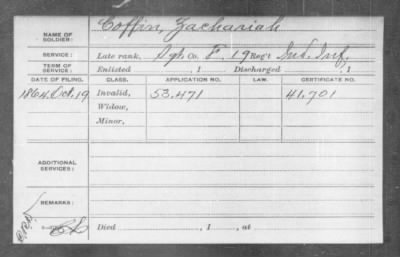 NAME OF SOLDIER: Coffin, Zachariah
SERVICE: Late rank, Sgt. Co. F, 19 Reg't Ind. Inf.
TERM OF SERVICE: Enlisted , 1 Discharged , 1
DATE OF FILING. CLASS. APPLICATION NO. LAW. CERTIFICATE NO.
1864, Oct. 19 Invalid, 53.471 41.701
Widow,
Minor,
ADDITIONAL SERVICES:
REMARKS:
Died , 1 , at